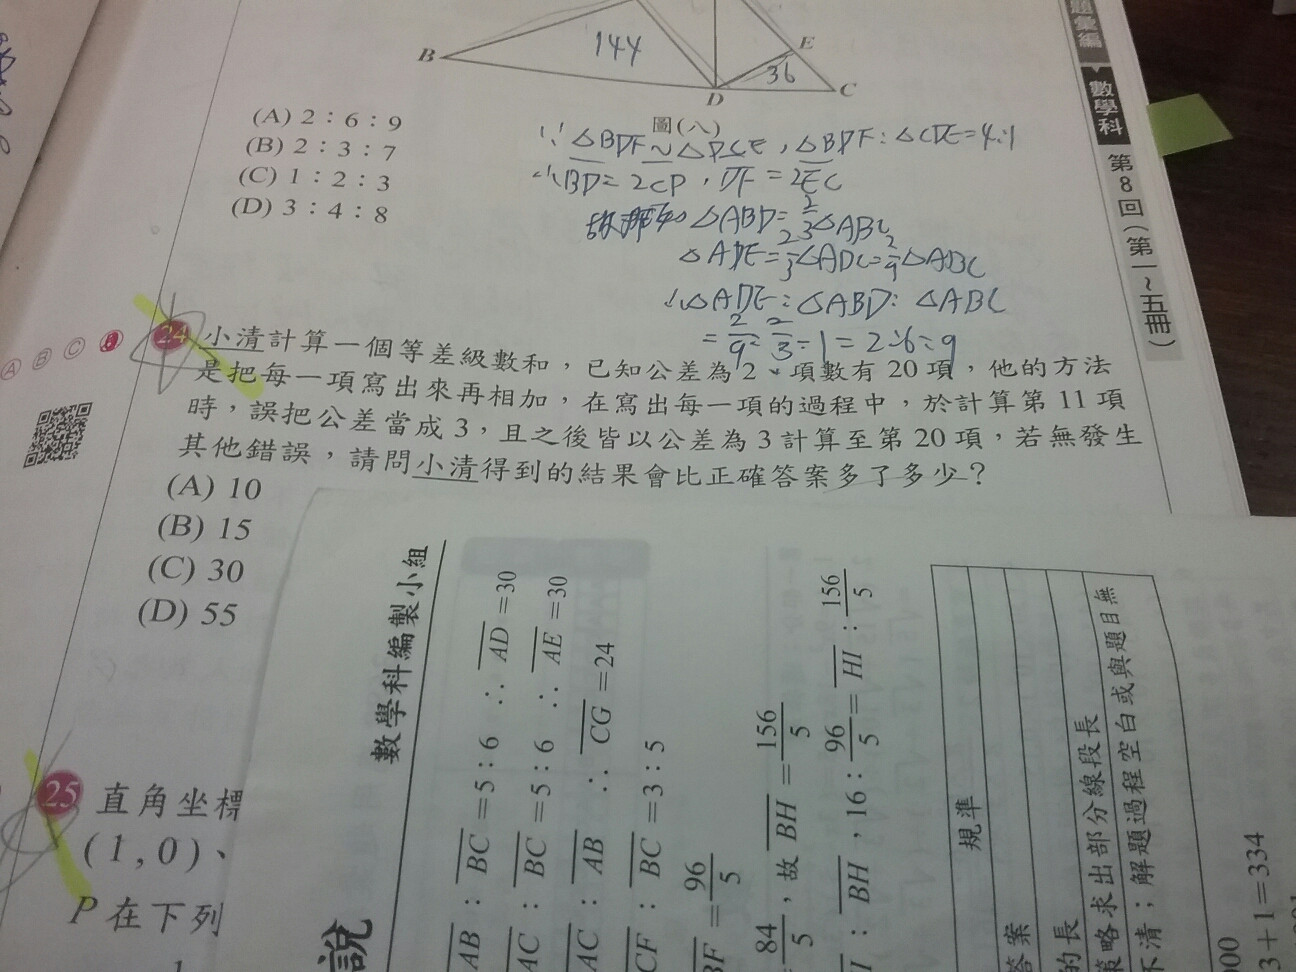 題彙編
數學科
第8回(第一~五冊)
B
144
E
36
D
C
圖(八)
(A) 2:6:9
(B) 2:3:7
(C) 1:2:3
(D) 3:4:8
∵ △BDF~△DCE , △BDF:△CDE=4:1
∴ BD=2CD , DF=2EC
△ABD=2/3△ABC
△ADE=2/3△ADC=2/9△ABC
∴△ADE:△ABD:△ABC
=2/9:2/3:1=2:6:9
A B C
24 小清計算一個等差級數和,已知公差為2、項數有20項,他的方法
是把每一項寫出來再相加,在寫出每一項的過程中,於計算第11項
時,誤把公差當成3,且之後皆以公差為3計算至第20項,若無發生
其他錯誤,請問小清得到的結果會比正確答案多了多少?
(A) 10
(B) 15
(C) 30
(D) 55
25 直角坐標
(1,0)、
P在下列
數學科編製小組
說
AB:BC=5:6 ∴AD=30
AC:BC=5:6 ∴AE=30
AC:AB ∴CG=24
CF:BC=3:5
BF=96/5
84/5,故BH=156/5
I:BH,16:96/5=HI:156/5
規準
答案
的長
策略求出部分線段長
下清;解題過程空白或與題目無
00
3+1=334